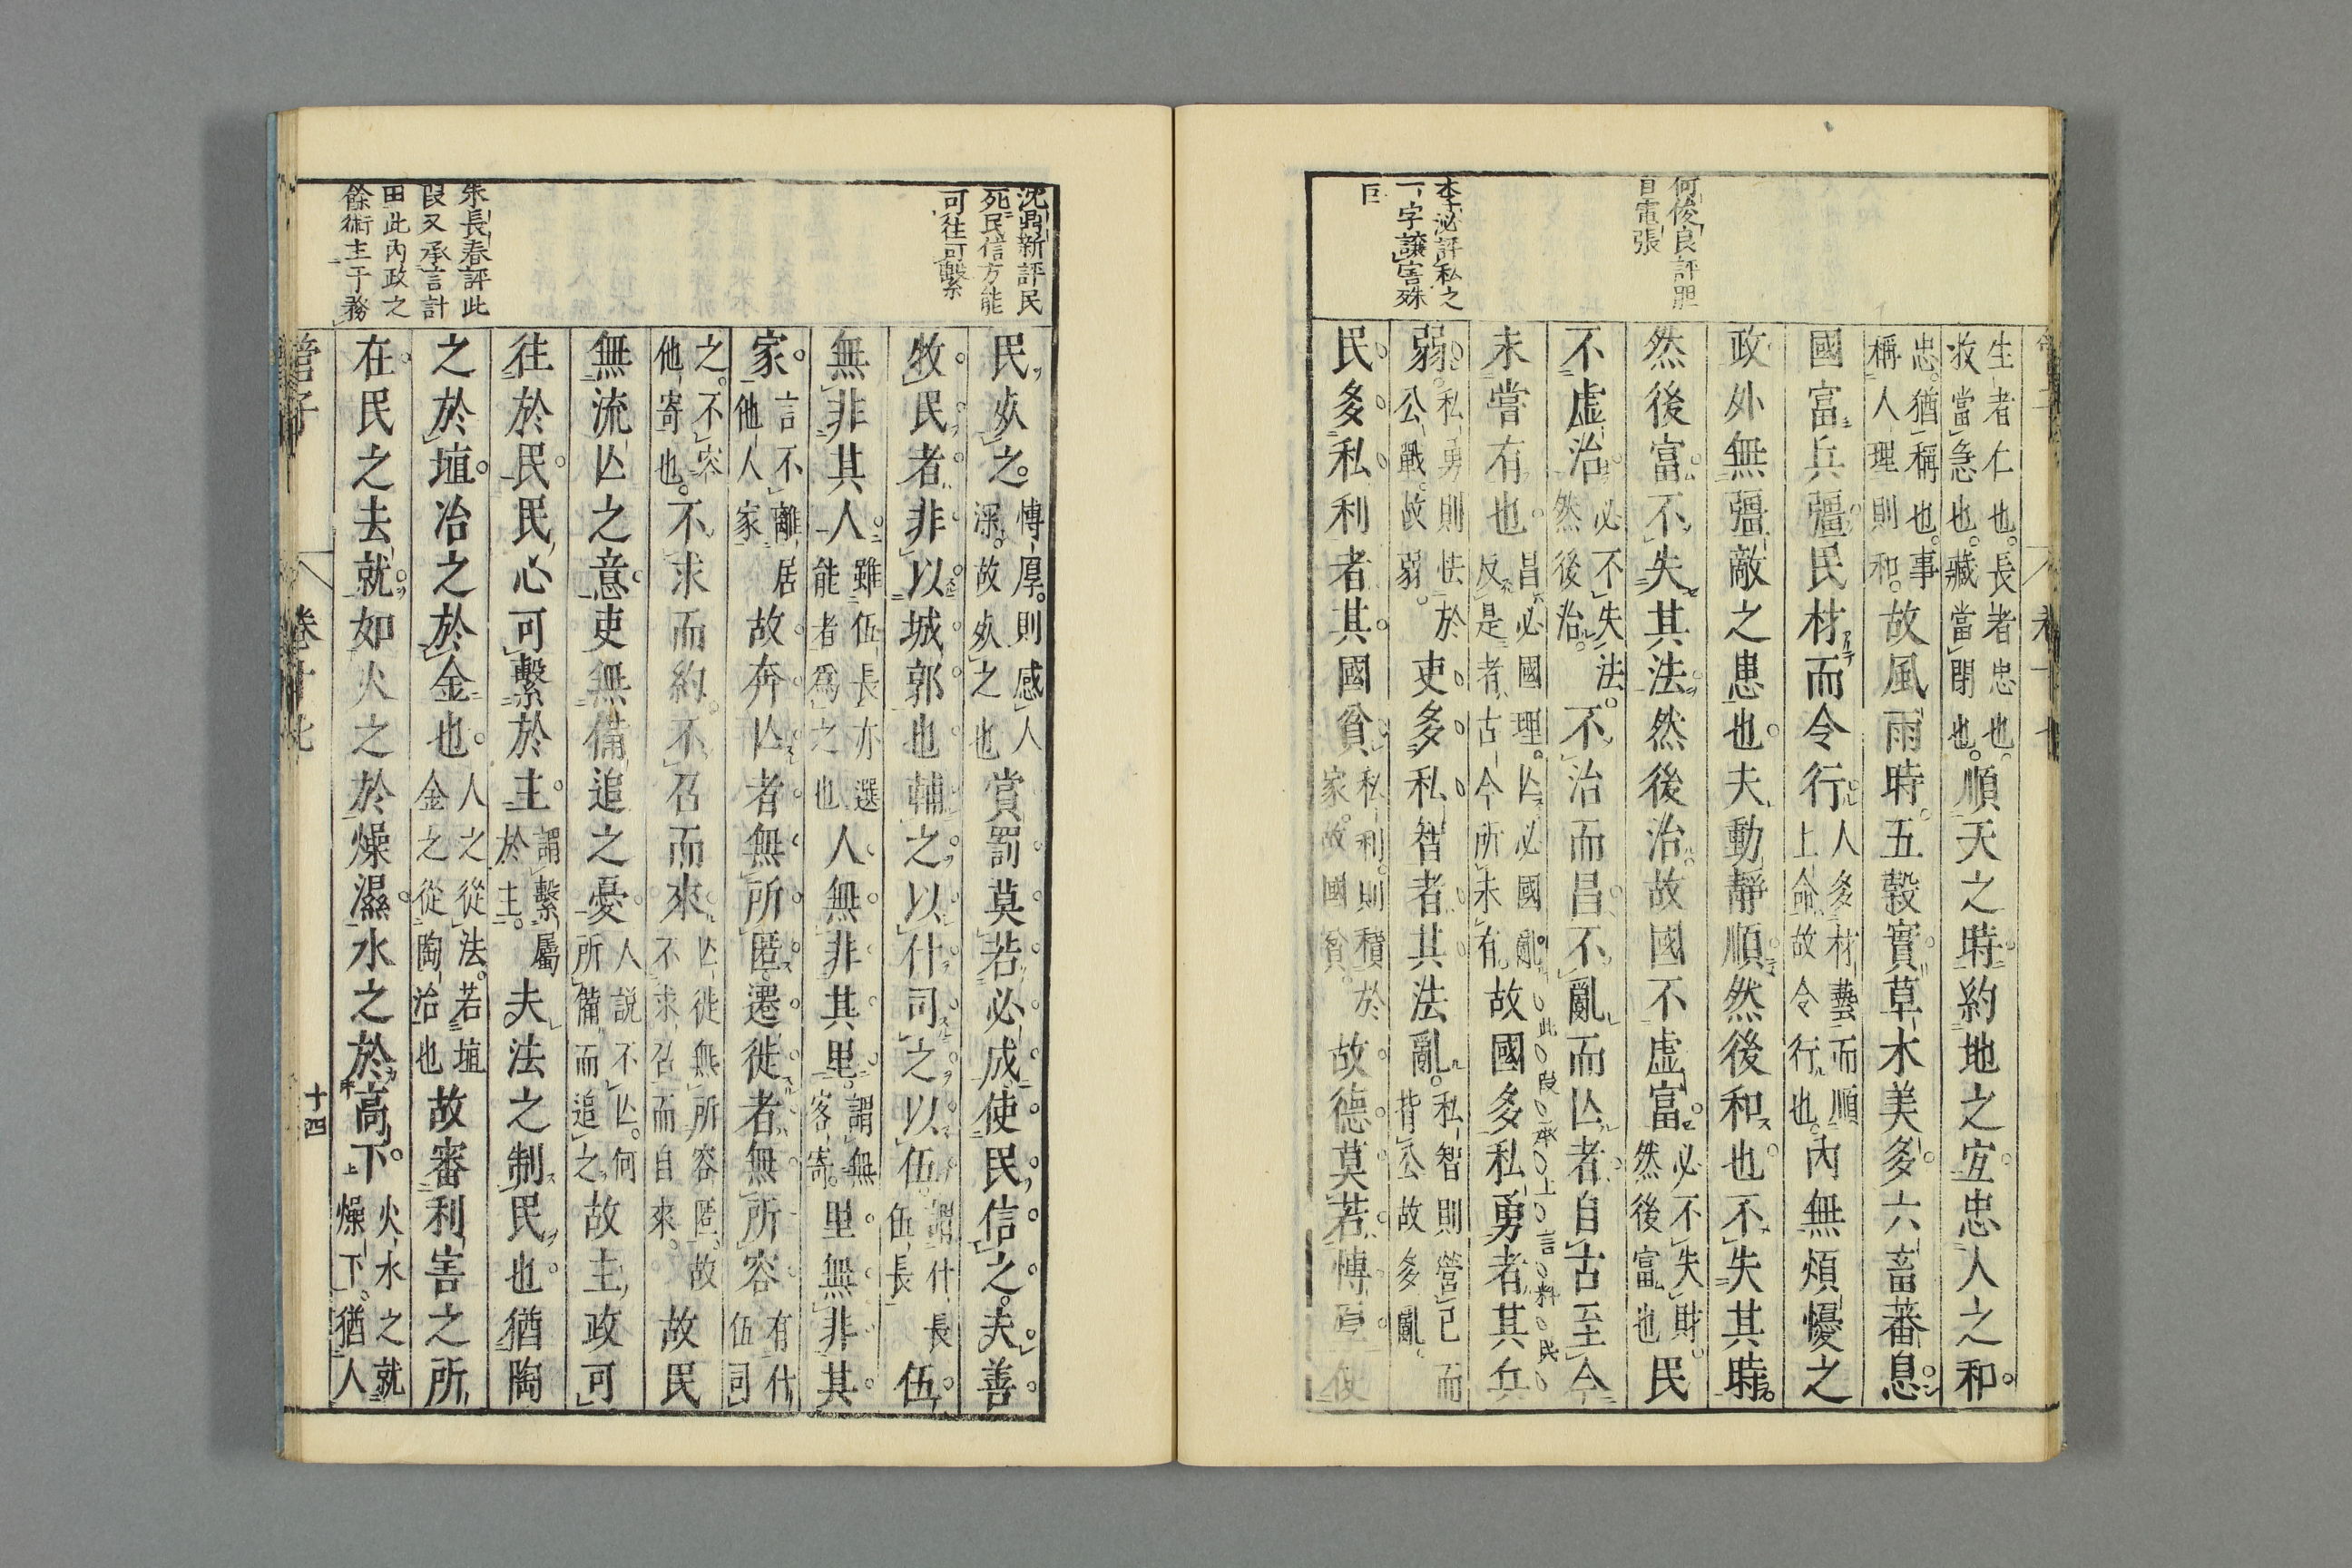 何俊良評胆
自電張
李泌評私之
一字讓害殊
巨
生者仁也長者忠也
收當急也藏當閉也
順天之時約地之宜忠人之和
忠猶稱也事
稱人理則和
故風雨時五穀實草木美多六畜蕃息
國富兵彊民材而令行
人多材藝而順
上命故令行也
內無煩憂之
政外無彊敵之患也夫動靜順然後和也不失其時
然後富不失其法然後治故國不虛富
必不失財
然後富也
民
不虛治
必不失法
然後治
不治而昌不亂而亾者自古至今
未嘗有也
昌必國理亾必國亂
反是者古今所未有
此段承上言料民
故國多私勇者其兵
弱
私勇則怯於
公戰故弱
吏多私智者其法亂
私智則營己而
背公故多亂
民多私利者其國貧
私利則積於
家故國貧
故德莫若愽厚使
沈鼎新評民
死民信方能
可往可繫
朱長春評此
段又承言計
田此內政之
餘術主于務
民死之
愽厚則感人
深故死之也
賞罰莫若必成使民信之夫善
牧民者非以城郭也輔之以什司之以伍
謂什長
伍長
伍
無非其人
雖伍長亦選
能者爲之也
人無非其里
謂無
客寄
里無非其
家
言不離居
他人家
故奔亾者無所匿遷徙者無所容
有什
伍司
之不容
他寄也
不求而約不召而來
亾徙無所容匿故
不求召而自來
故民
無流亾之意吏無備追之憂
人說不亾何
所備而追之
故主政可
往於民民心可繫於主
謂繫屬
於主
夫法之制民也猶陶
之於埴冶之於金也
人之從法若埴
金之從陶冶也
故審利害之所
在民之去就如火之於燥濕水之於高下
火水之就
燥下猶人
管子
卷十七
十四